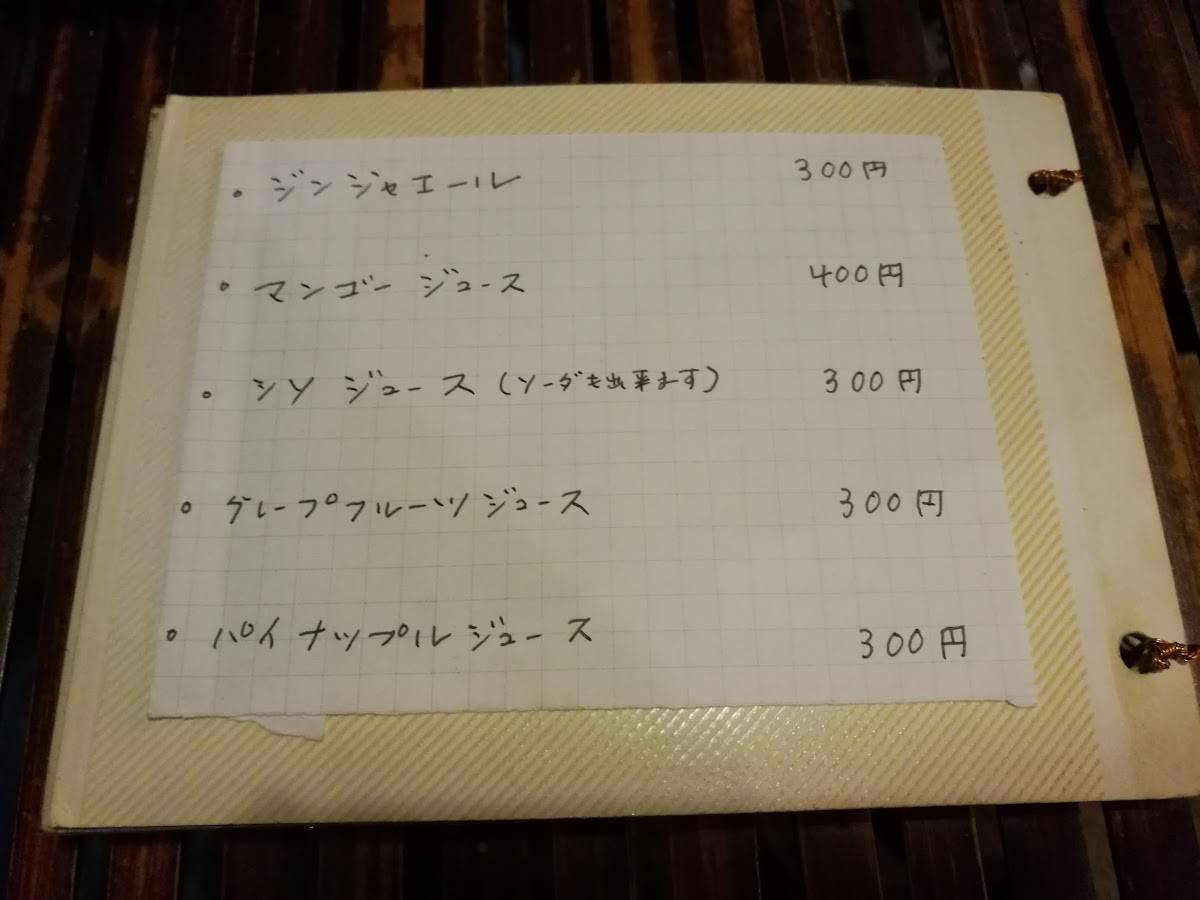 ・ジンジャエール 300円
・マンゴー ジュース 400円
・シソ ジュース (ソーダも出来ます) 300円
・グレープフルーツ ジュース 300円
・パイナップル ジュース 300円